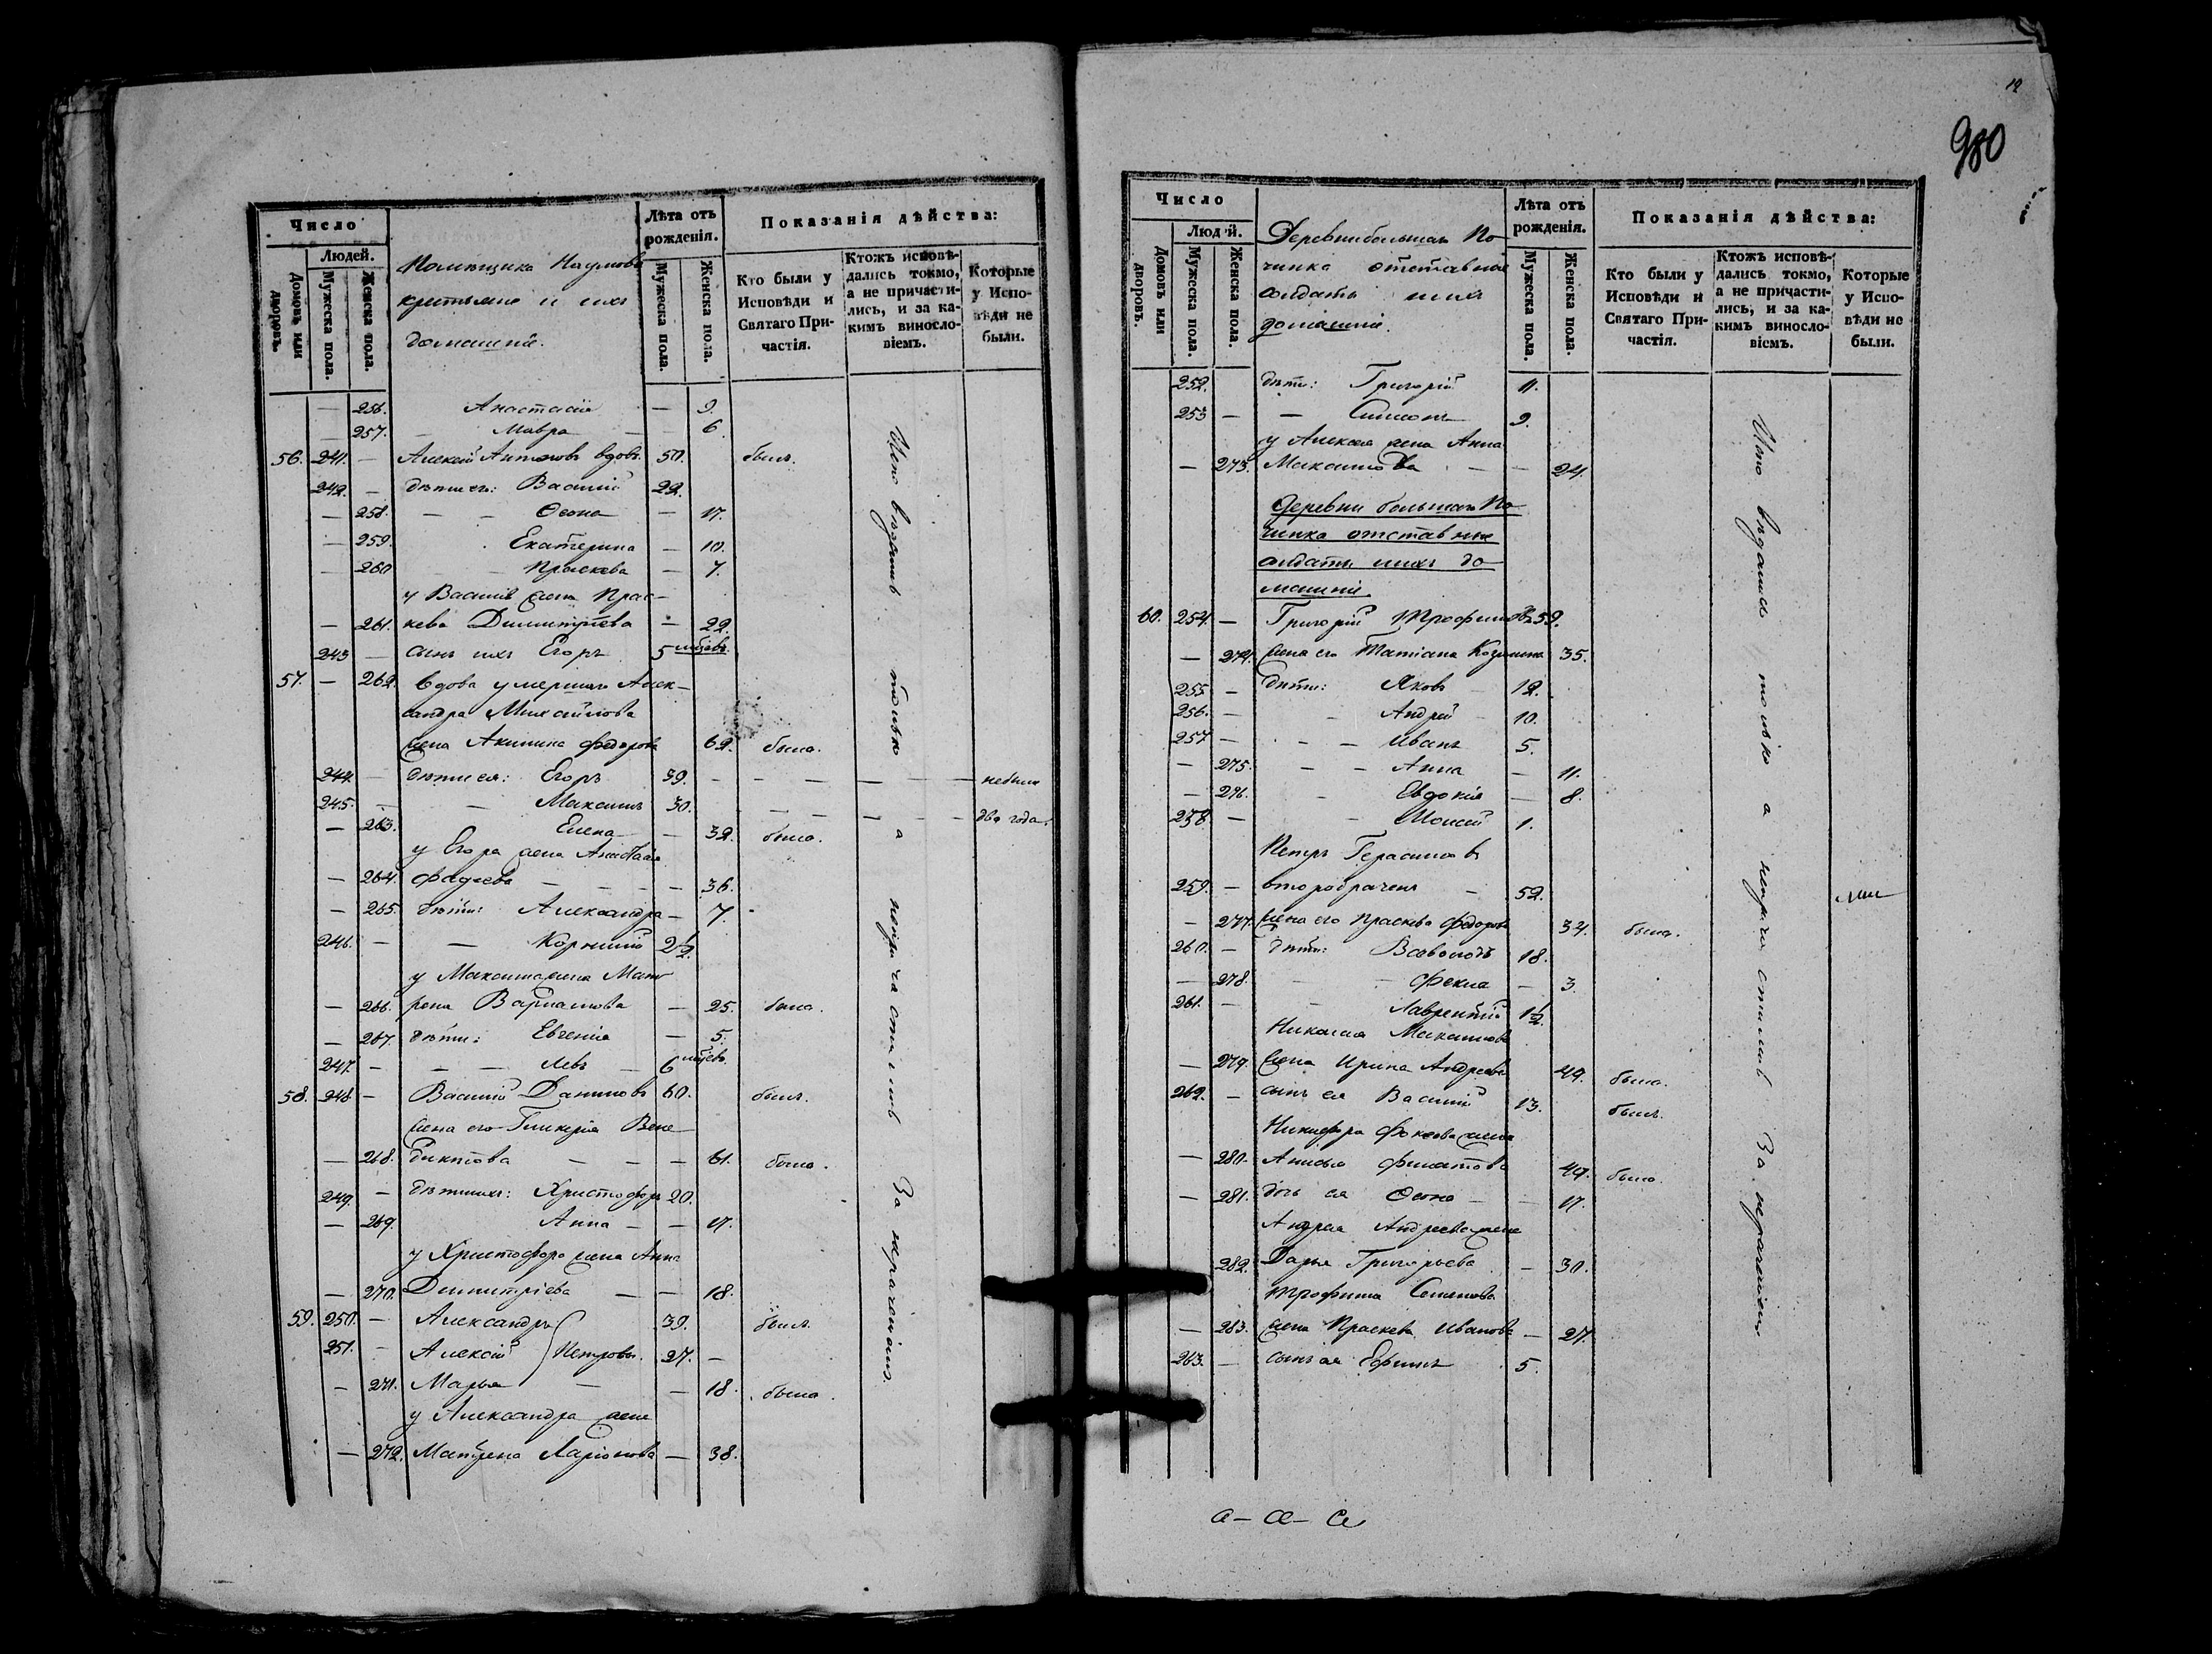 Число
Людей.
Домовъ или дворовъ.
Мужеска пола.
Женска пола.
Помѣщика Наумова
крестьяне и ихъ
домашніе.
Лѣта отъ рожденія.
Мужеска пола.
Женска пола.
Показанія дѣйства:
Кто были у Исповѣди и Святаго Причастія.
Ктожъ исповѣдались токмо, а не причастились, и за какимъ винословіемъ.
Которые у Исповѣди не были.
— 256. Анастасія — 9.
257. — Мавра — 6.
56. 241. — Алексѣй Антоновъ вдовъ 50. былъ.
242. — дѣти его: Василій 22.
— 258. — — Ѳеона — 17.
— 259. Екатерина — 10.
— 260 — — Праскева — 7.
у Василія жена Прас-
— 261. кева Димитріева — 22.
243 — сынъ ихъ Егоръ 5 мѣсев.
57. — 262. вдова умершаго Алек-
сандра Михайлова
жена Акилина Федорова 62. была.
244. — дѣти ея: Егоръ 39. — — — — — небыли
245. — — Максимъ 30. — — — — — два года.
— 263. Елена — 32. была.
у Егора жена Анастасія
— 264. Фадеева — — — — 36.
— 265. дѣти: Александра — 7.
246. — — Корнилій 2½
у Максима жена Мат-
— 266. рена Варламова — 25. была.
— 267. дѣти: Евгенія — 5.
247. — — — Левъ — 6 мѣсев.
58. 248. — Василій Даниловъ 60. былъ.
жена его Гликерія Вене-
— 268. диктова — — — 61. была.
249. — дѣти ихъ: Христофоръ 20.
— 269. Анна — — 17.
у Христофора жена Анна
— 270. Димитріева — — 18.
59. 250. — Александръ 39. былъ.
251. — Алексѣй Петровы. 27. —
— 271. Марья — — 18. была.
у Александра жена
— 272. Матрена Ларіонова — 38.
Что вѣдались только а непричастились За нераченіемъ.
980
Число
Людей.
Домовъ или дворовъ.
Мужеска пола.
Женска пола.
Деревни большаго По-
чинка отставные
солдаты и ихъ
домашніе.
Лѣта отъ рожденія.
Мужеска пола.
Женска пола.
Показанія дѣйства:
Кто были у Исповѣди и Святаго Причастія.
Ктожъ исповѣдались токмо, а не причастились, и за какимъ винословіемъ.
Которые у Исповѣди не были.
252. дѣти: Григорій 11.
253 — — Симеонъ 9.
у Алексея жена Анна
— 273. Максимова — — 24.
Деревни большаго По-
чинка отставные
солдаты и ихъ до-
машніе.
60. 254. — Григорій Трофимовъ 59.
— 274. жена его Татіана Козмина 35.
255 — дѣти: Яковъ 12.
256. — — Андрей — 10.
257 — — — Иванъ 5.
— 275. — — Анна — 11.
— 276. — Евдокія — 8.
258 — — Моисей 1.
Петръ Герасимовъ
259. — второбраченъ — 52.
— 277. жена его Праскева Федорова 34. была.
260. — дѣти: Всеволодъ 18.
— 278. — — Фекла — 3.
261. — — Лаврентій 1½
Николая Максимова
— 279. жена Ирина Андреева 49. была.
262. — сынъ ея Василій 13. былъ.
Никифора Фокеева жена
— 280. Анисья Филатова 49. была.
— 281. дочь ея Ѳеона — — 17.
Андрея Андреева жена
282. Дарья Григорьева — 30.
Трофима Семенова
— 283. жена Праскева Иванова — 27.
263. — сынъ ея Ефимъ 5.
Что вѣдались только а непричастились За нераченіемъ